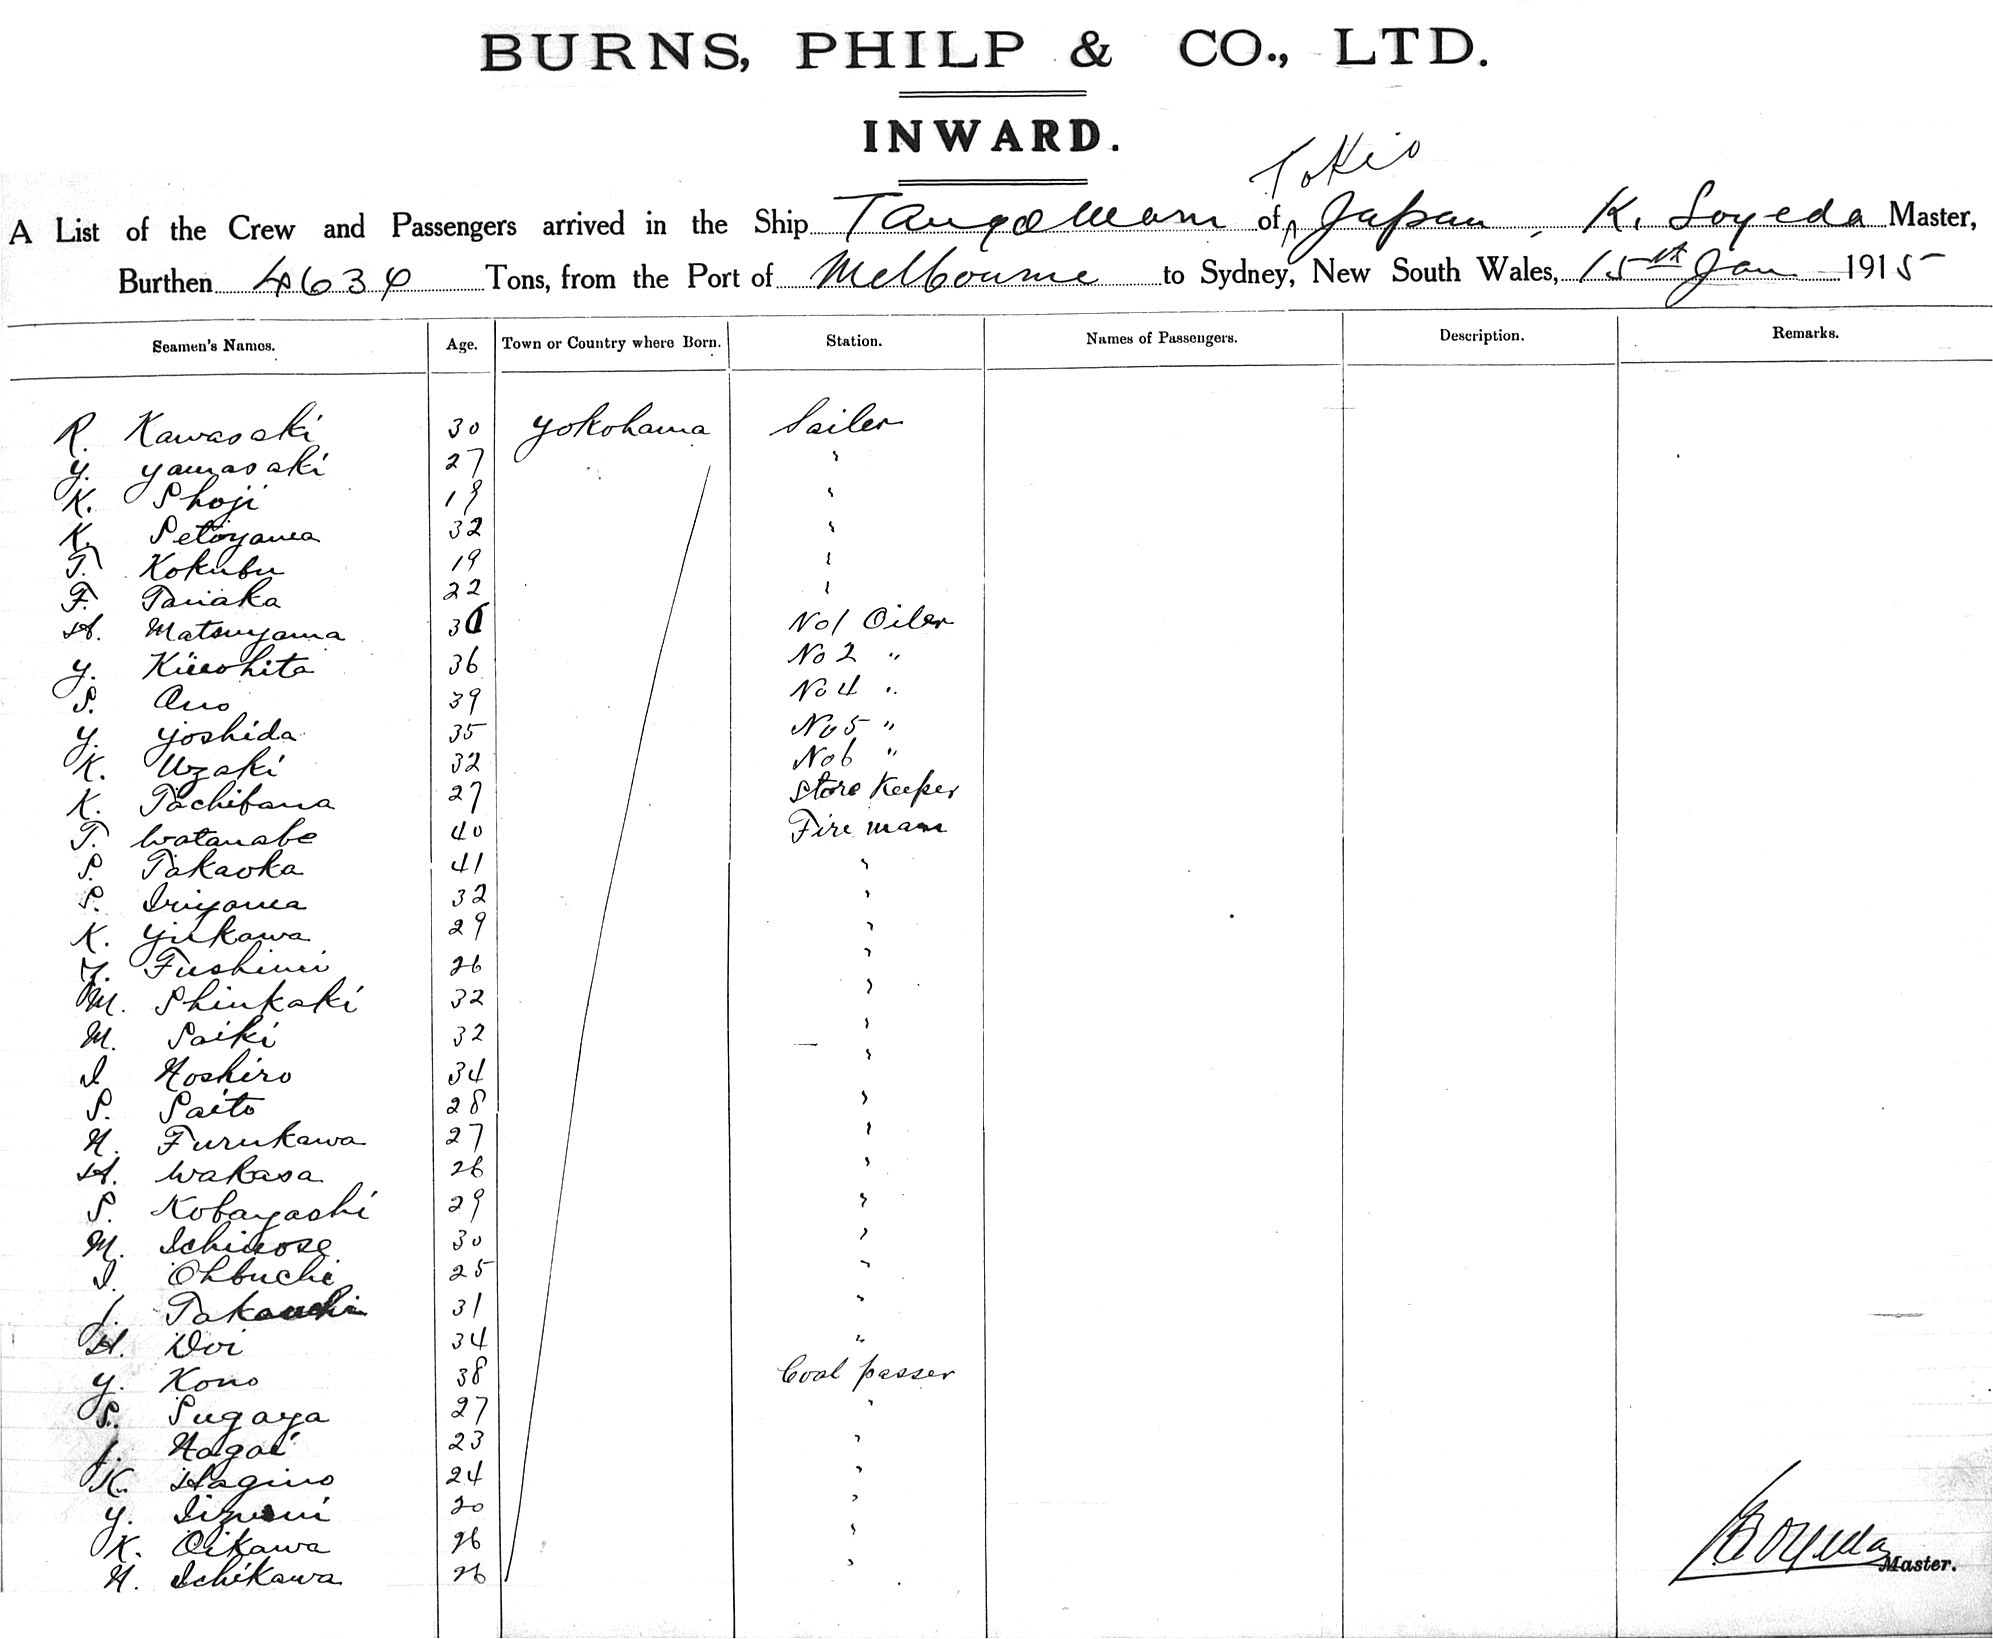 BURNS, PHILP & CO., LTD.
INWARD.
Tokio
A List of the Crew and Passengers arrived in the Ship Tango Maru of Japan, K. Soyeda Master,
Burthen 4634 Tons, from the Port of Melbourne to Sydney, New South Wales, 15th Jan 1915
Seamen's Names. Age. Town or Country where Born. Station. Names of Passengers. Description. Remarks.
R. Kawasaki 30 Yokohama Sailer
Y. Yamasaki 27 "
K. Shoji 19 "
K. Setoyama 32 "
T. Kokubu 19 "
F. Tanaka 22 "
H. Matsuyama No1 Oiler
Y. Kinoshita 36 No 2 "
S. Ono 39 No 4 "
Y. Yoshida 35 No 5 "
K. Uzaki 32 No 6 "
K. Tachibana 27 Store Keeper
T. Watanabe 40 Fire man
S. Takaoka 41 "
S. Iriyama 32 "
K. Yukawa 29 "
Y. Fushimi 26 "
M. Shinkaki 32 "
M. Saiki 32 "
I Noshiro 34 "
S. Saito 28 "
N. Furukawa 27 "
H. Wakasa 26 "
S. Kobayashi 29 "
M. Ichinose 30 "
I. Ohbuchi 25 "
J. Takeuchi 31 "
H. Doi 34 "
Y. Kono 38 Coal passer
S. Sugaya 27 "
J. Nagai 23 "
K. Hagino 24 "
Y. Iizumi 20 "
K. Oikawa 26 "
N. Ichikawa 26 "
K Soyeda Master.